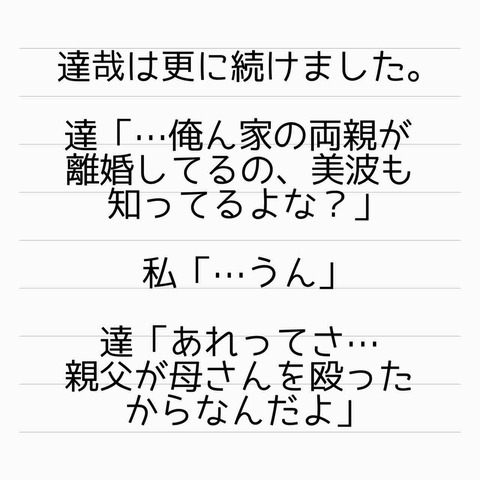 達哉は更に続けました。
達「…俺ん家の両親が
離婚してるの、美波も
知ってるよな？」
私「…うん」
達「あれってさ…
親父が母さんを殴った
からなんだよ」